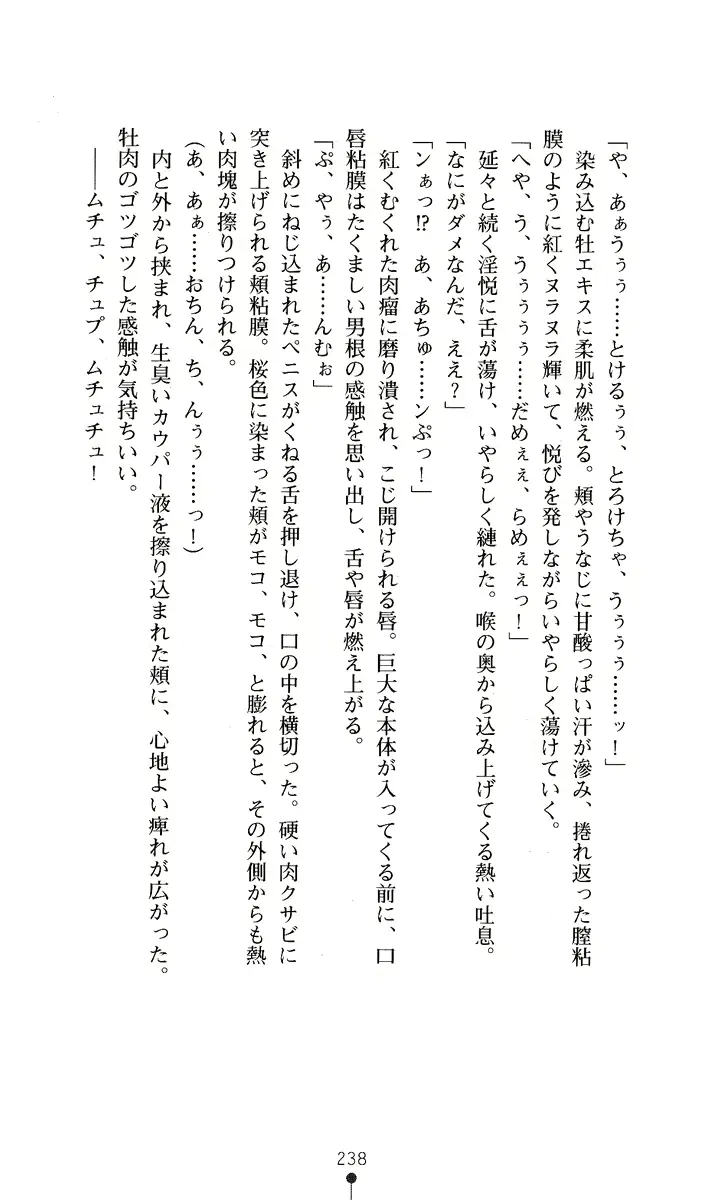 「や、あぁうぅぅ……とけるぅぅ、とろけちゃ、うぅぅぅ……ッ！」
染み込む牡エキスに柔肌が燃える。頬やうなじに甘酸っぱい汗が滲み、捲れ返った膣粘
膜のように紅くヌラヌラ輝いて、悦びを発しながらいやらしく蕩けていく。
「へや、う、うぅぅぅぅ……だめぇぇ、らめぇぇっ！」
延々と続く淫悦に舌が蕩け、いやらしく縺れた。喉の奥から込み上げてくる熱い吐息。
「なにがダメなんだ、ええ？」
「ンぁっ!?　あ、あちゅ……ンぷっ！」
紅くむくれた肉瘤に磨り潰され、こじ開けられる唇。巨大な本体が入ってくる前に、口
唇粘膜はたくましい男根の感触を思い出し、舌や唇が燃え上がる。
「ぷ、やぅ、あ……んむぉ」
斜めにねじ込まれたペニスがくねる舌を押し退け、口の中を横切った。硬い肉クサビに
突き上げられる頬粘膜。桜色に染まった頬がモコ、モコ、と膨れると、その外側からも熱
い肉塊が擦りつけられる。
（あ、あぁ……おちん、ち、んぅぅ……っ！）
内と外から挟まれ、生臭いカウパー液を擦り込まれた頬に、心地よい痺れが広がった。
牡肉のゴツゴツした感触が気持ちいい。
――ムチュ、チュプ、ムチュチュ！
238